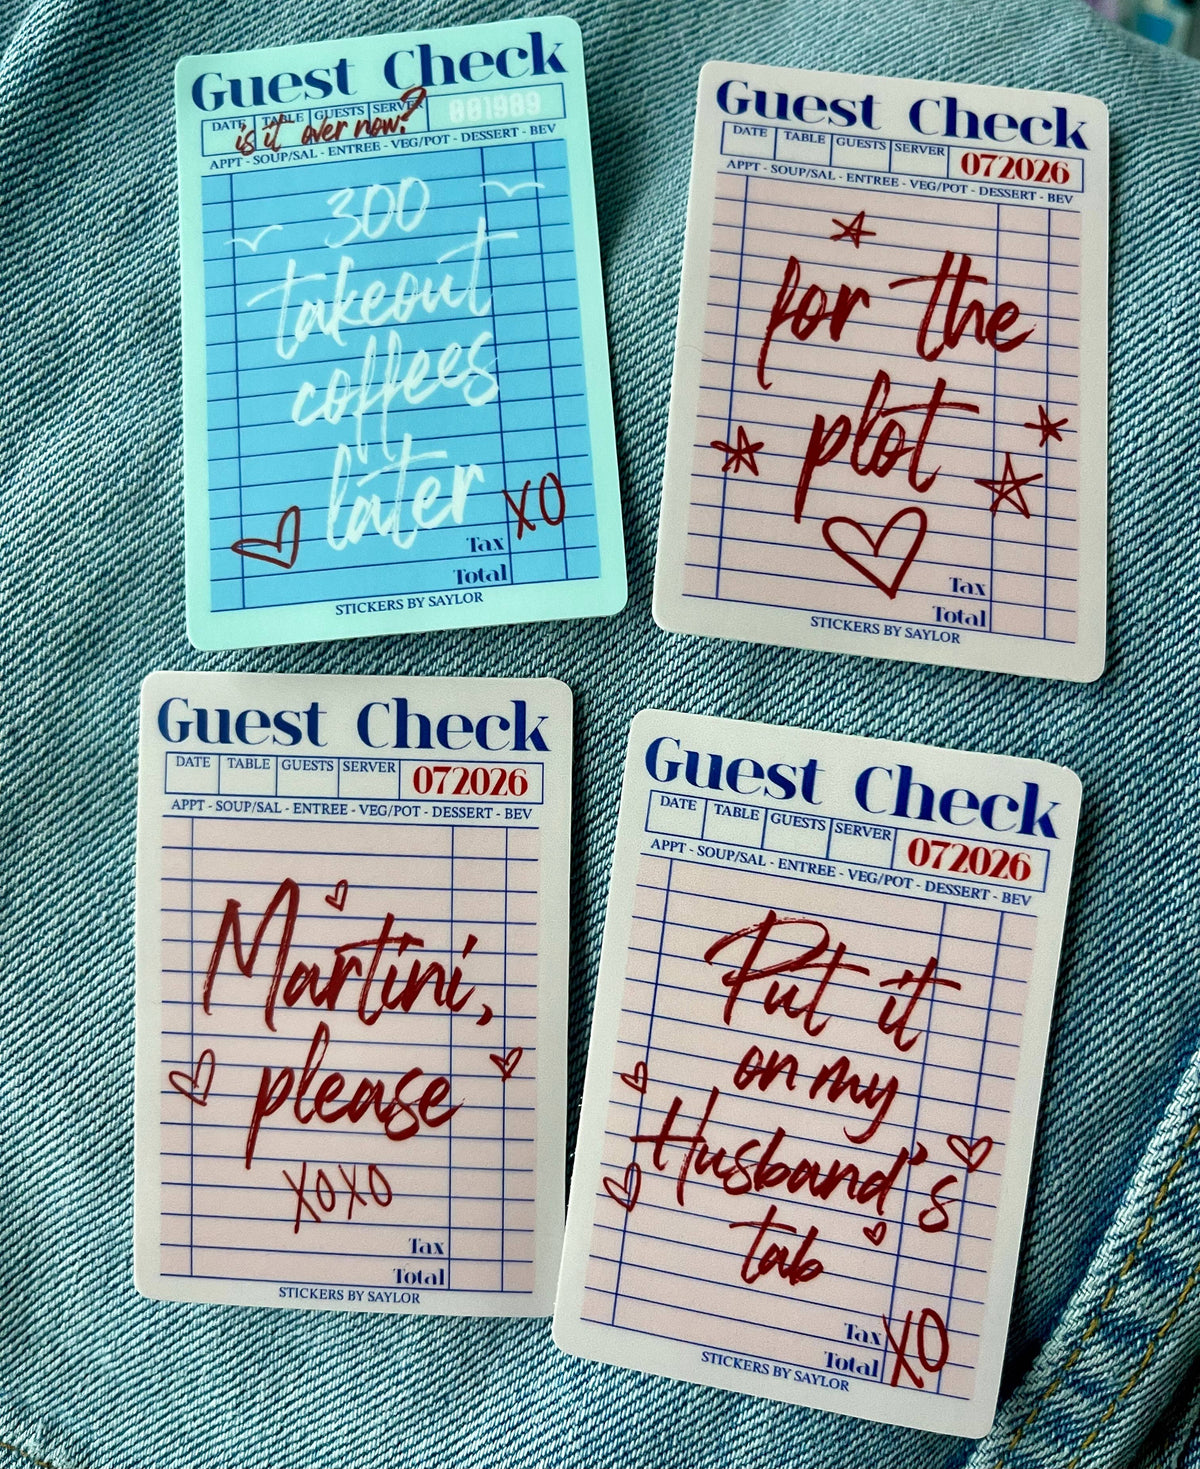 Guest Check
DATE TABLE GUESTS SERVER 001989
is it over now?
APPT - SOUP/SAL - ENTREE - VEG/POT - DESSERT - BEV
300
takeout
coffees
later
XO
Tax
Total
STICKERS BY SAYLOR
Guest Check
DATE TABLE GUESTS SERVER 072026
APPT - SOUP/SAL - ENTREE - VEG/POT - DESSERT - BEV
for the
plot
Tax
Total
STICKERS BY SAYLOR
Guest Check
DATE TABLE GUESTS SERVER 072026
APPT - SOUP/SAL - ENTREE - VEG/POT - DESSERT - BEV
Martini,
please
XOXO
Tax
Total
STICKERS BY SAYLOR
Guest Check
DATE TABLE GUESTS SERVER 072026
APPT - SOUP/SAL - ENTREE - VEG/POT - DESSERT - BEV
Put it
on my
Husband's
tab
Tax XO
Total
STICKERS BY SAYLOR